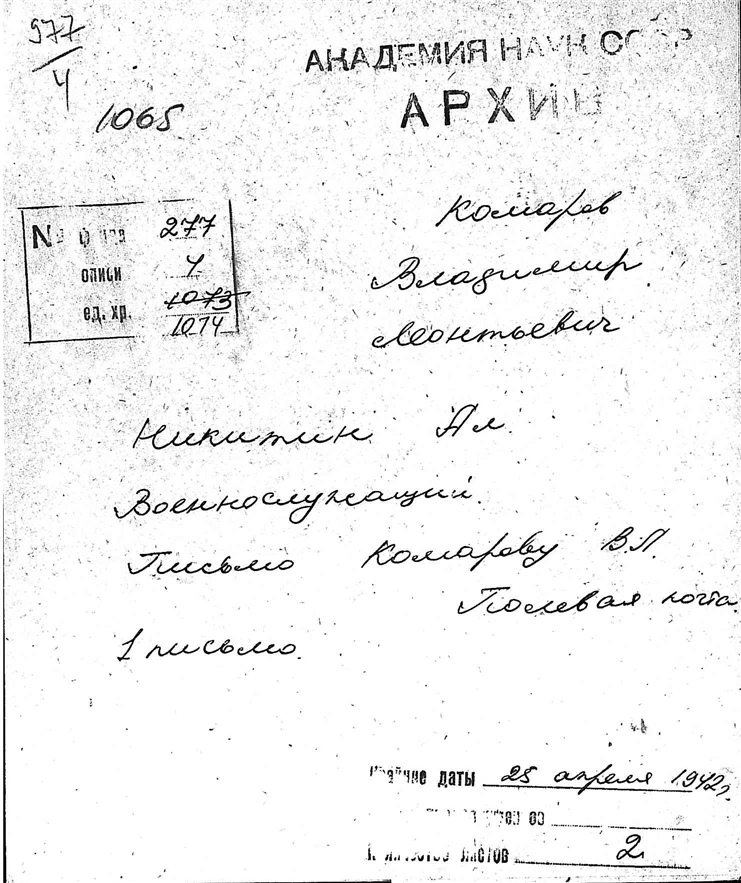 977
4
1065
АКАДЕМИЯ НАУК СССР
АРХИВ
№ фонда 277
описи 4
ед. хр. 1073
1074
Комаров
Владимир
Леонтьевич
Никитин Ал.
Военнослужащий.
Письмо Комарову В.Л.
Полевая почта.
1 письмо.
Крайние даты 25 апреля 1942г.
Количество листов 2